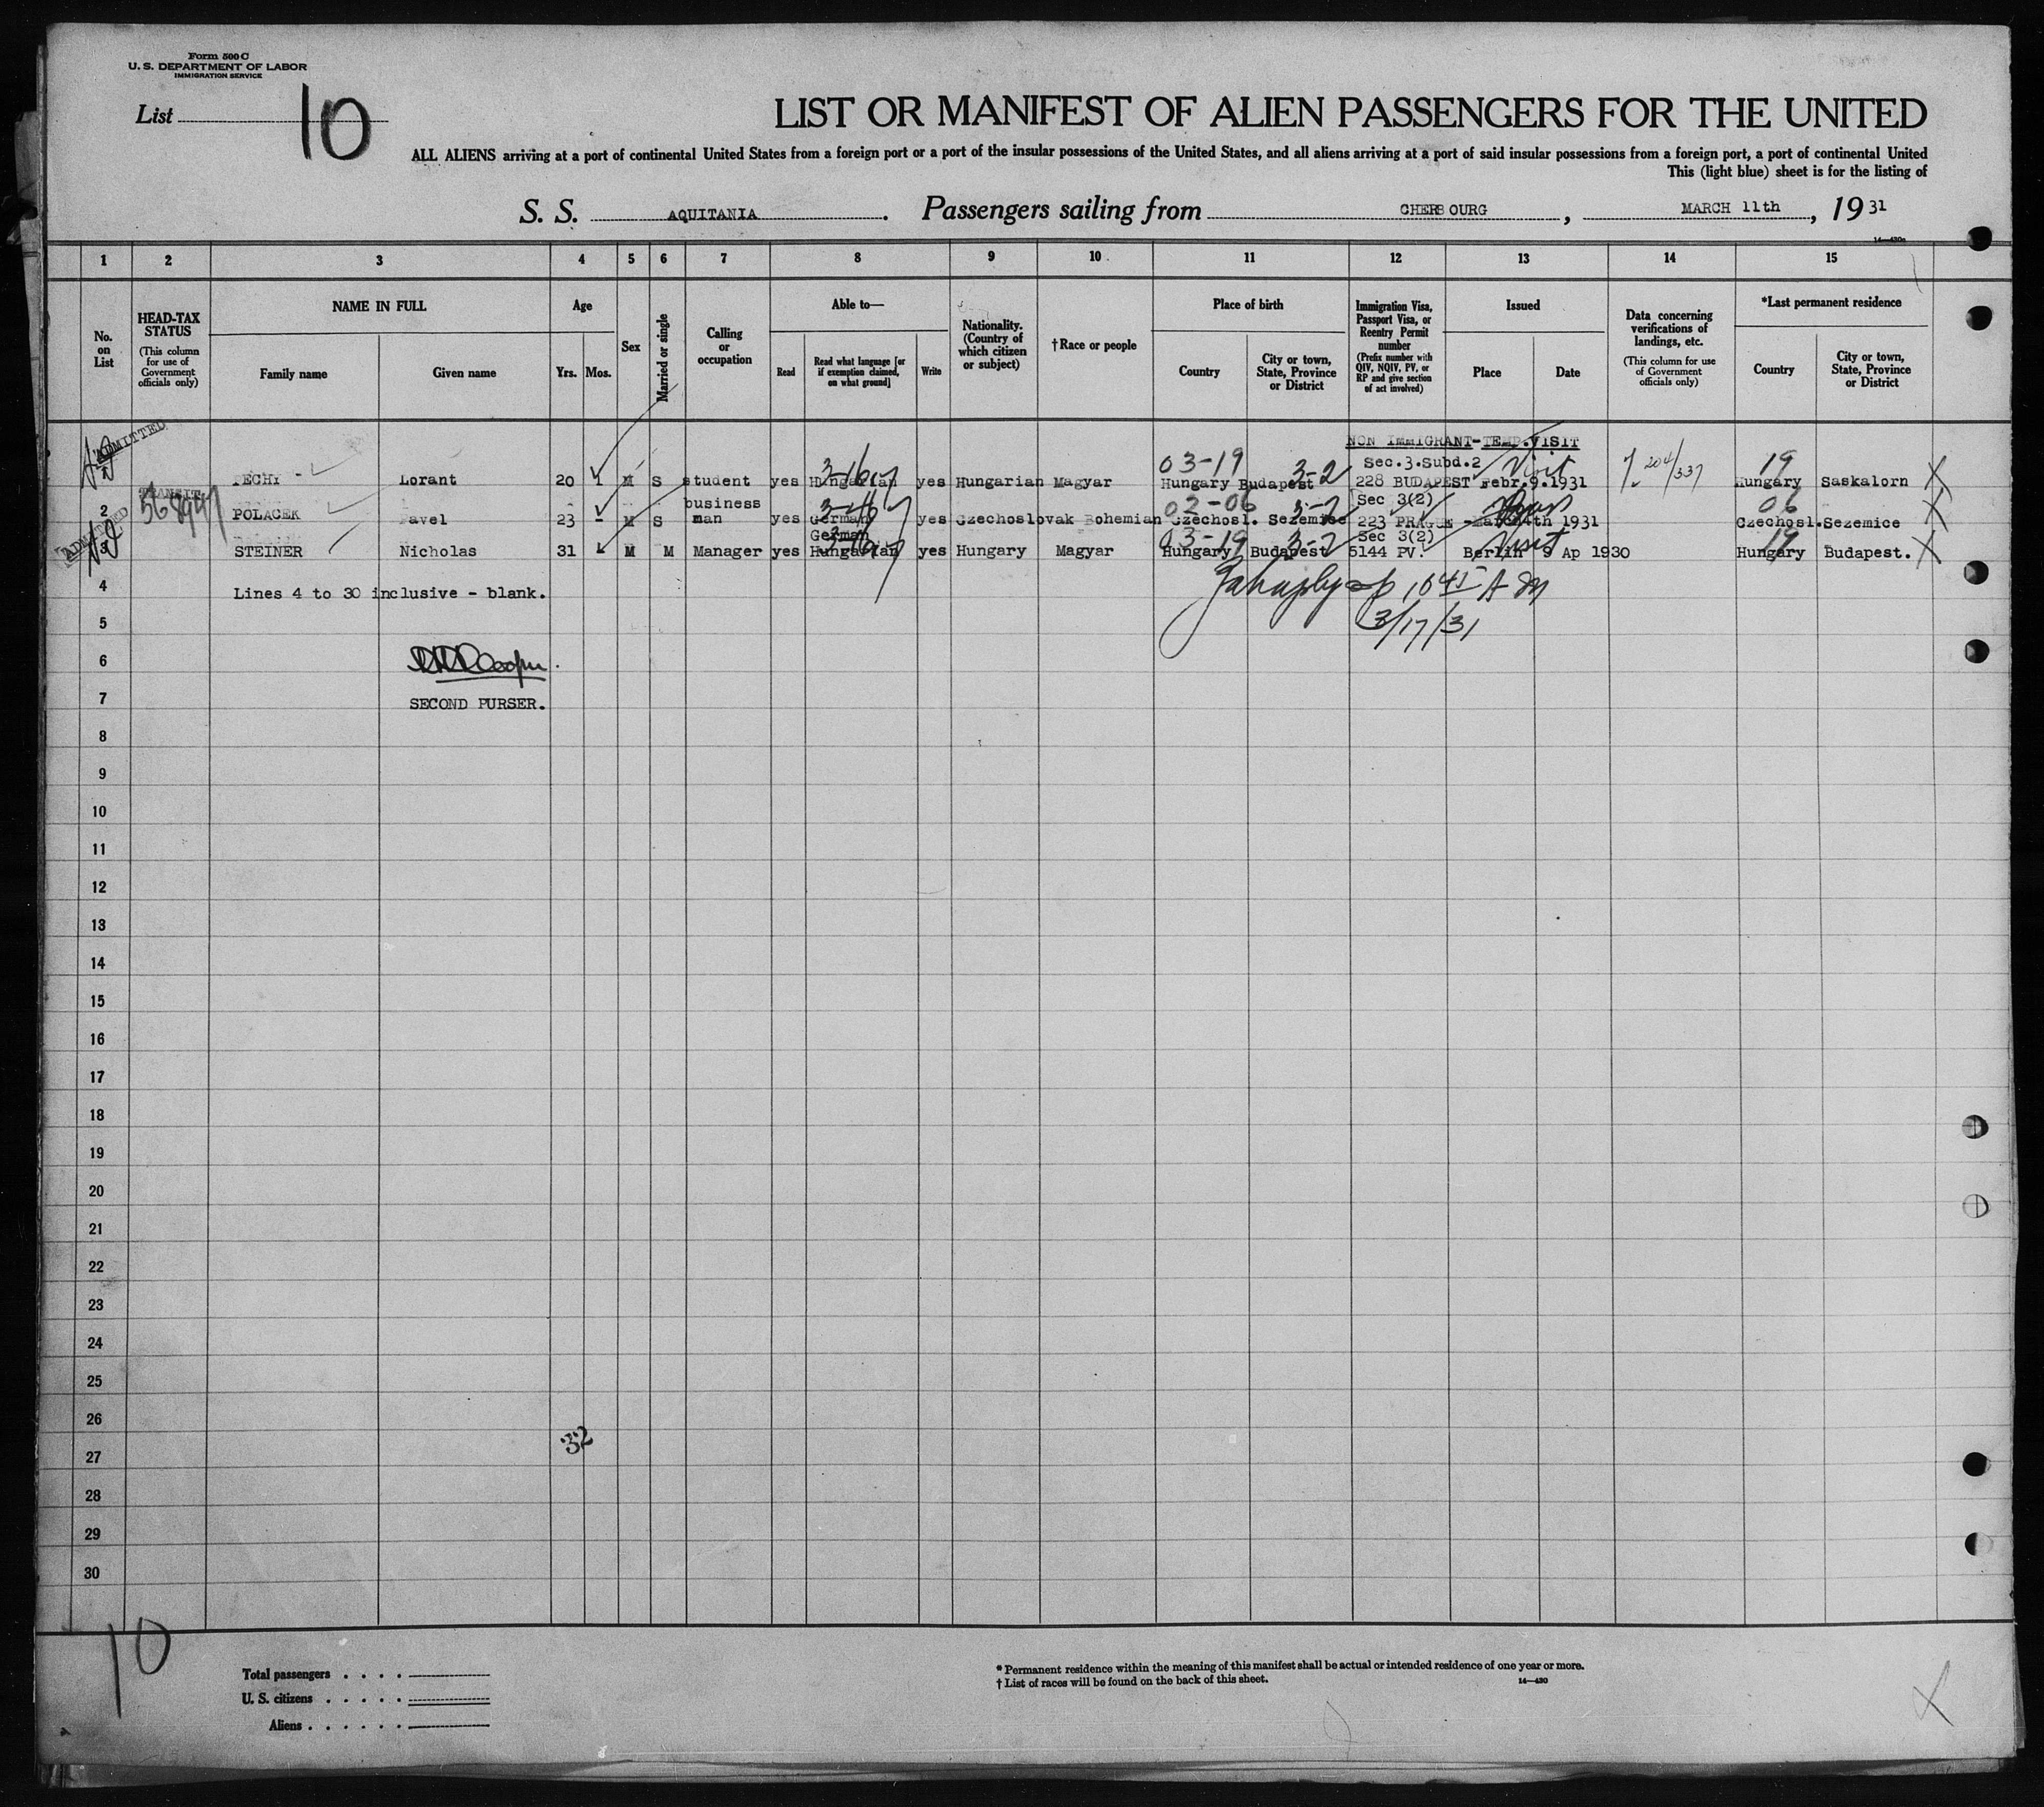 Form 500 C
U. S. DEPARTMENT OF LABOR
IMMIGRATION SERVICE
List 10
LIST OR MANIFEST OF ALIEN PASSENGERS FOR THE UNITED
ALL ALIENS arriving at a port of continental United States from a foreign port or a port of the insular possessions of the United States, and all aliens arriving at a port of said insular possessions from a foreign port, a port of continental United
This (light blue) sheet is for the listing of
S. S. AQUITANIA. Passengers sailing from CHERBOURG, MARCH 11th, 19 31
14—430a
1 2 3 4 5 6 7 8 9 10 11 12 13 14 15
No. on List
HEAD-TAX STATUS (This column for use of Government officials only)
NAME IN FULL
Family name
Given name
Age
Yrs.
Mos.
Sex
Married or single
Calling or occupation
Able to—
Read
Read what language [or if exemption claimed, on what ground]
Write
Nationality. (Country of which citizen or subject)
†Race or people
Place of birth
Country
City or town, State, Province or District
Immigration Visa, Passport Visa, or Reentry Permit number (Prefix number with QIV, NQIV, PV, or RP and give section of act involved)
Issued
Place
Date
Data concerning verifications of landings, etc. (This column for use of Government officials only)
*Last permanent residence
Country
City or town, State, Province or District
ADMITTED
NON IMMIGRANT-TEMP.VISIT
03-19 Sec.3.Subd.2 Visit 19
1 PECHY - Lorant 20 1 M S student yes Hungarian yes Hungarian Magyar Hungary Budapest 3-2 228 BUDAPEST Febr.9.1931 204/337 Hungary Saskalorn X
TRANSIT business 02-06 Sec 3(2) 06
2 POLACEK Pavel 23 - M S man yes German yes Czechoslovak Bohemian Czechosl. Sezemice 3-2 223 PRAGUE - March 4th 1931 Czechosl. Sezemice X
ADMITTED German 03-19 Sec 3(2) Visit 19
3 STEINER Nicholas 31 M M Manager yes Hungarian yes Hungary Magyar Hungary Budapest 3-2 5144 PV. Berlin 9 Ap 1930 Hungary Budapest. X
4 Lines 4 to 30 inclusive - blank.
10 45 A M
5 3/17/31
6
7 SECOND PURSER.
8
9
10
11
12
13
14
15
16
17
18
19
20
21
22
23
24
25
26
32
27
28
29
30
10
Total passengers . . . .
U. S. citizens . . . . .
Aliens . . . . . .
* Permanent residence within the meaning of this manifest shall be actual or intended residence of one year or more.
† List of races will be found on the back of this sheet.
14—430